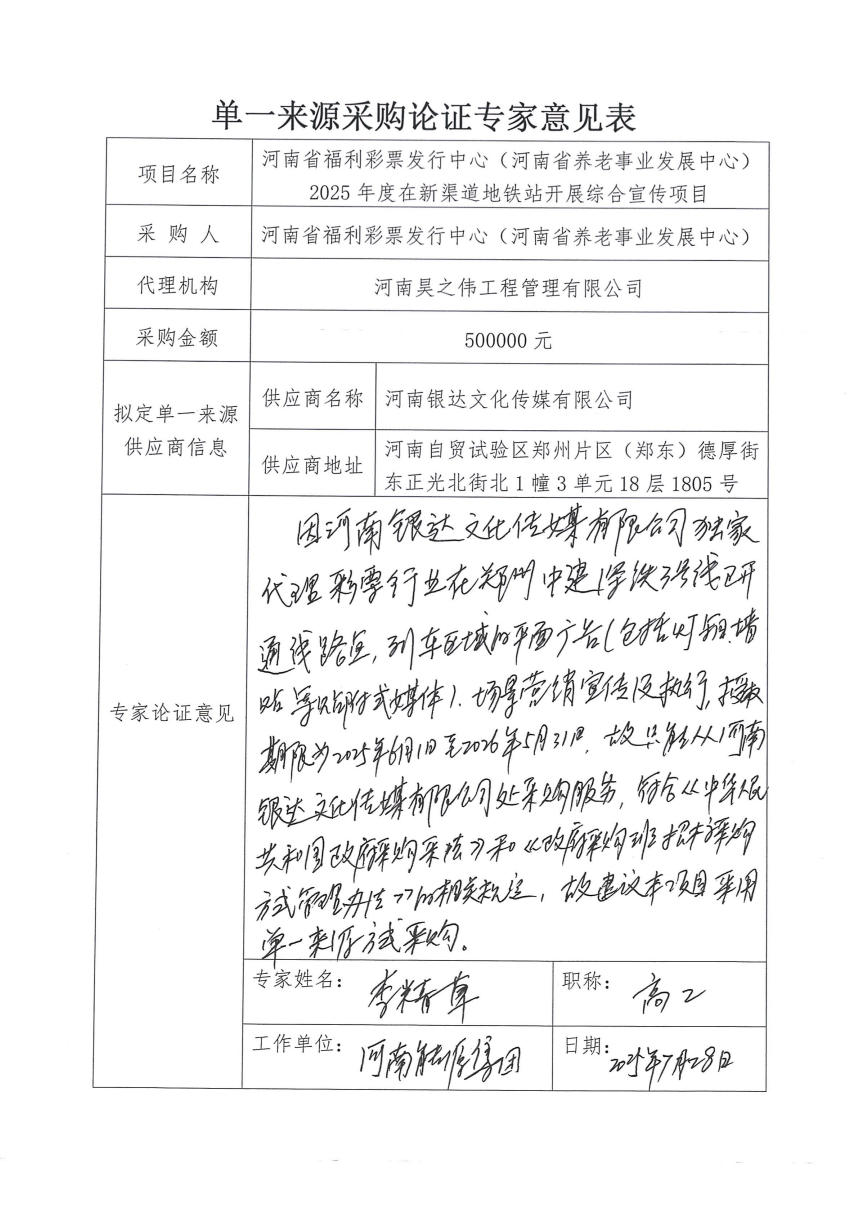 单一来源采购论证专家意见表
项目名称
河南省福利彩票发行中心（河南省养老事业发展中心）
2025 年度在新渠道地铁站开展综合宣传项目
采 购 人
河南省福利彩票发行中心（河南省养老事业发展中心）
代理机构
河南昊之伟工程管理有限公司
采购金额
500000 元
拟定单一来源
供应商信息
供应商名称
河南银达文化传媒有限公司
供应商地址
河南自贸试验区郑州片区（郑东）德厚街
东正光北街北 1 幢 3 单元 18 层 1805 号
专家论证意见
因河南银达文化传媒有限公司独家
代理彩票行业在郑州中建深铁3号线已开
通线路, 列车区域的平面广告(包括灯箱.墙
贴等贴附式媒体). 场景营销宣传及执行, 授权
期限为2025年6月1日至2026年5月31日, 故只能从河南
银达文化传媒有限公司处采购服务, 符合《中华人民
共和国政府采购法》和《政府采购非招标采购
方式管理办法》的相关规定, 故建议本项目采用
单一来源方式采购。
专家姓名：
李精草
职称：
高工
工作单位：
河南能源集团
日期：
2025年7月28日